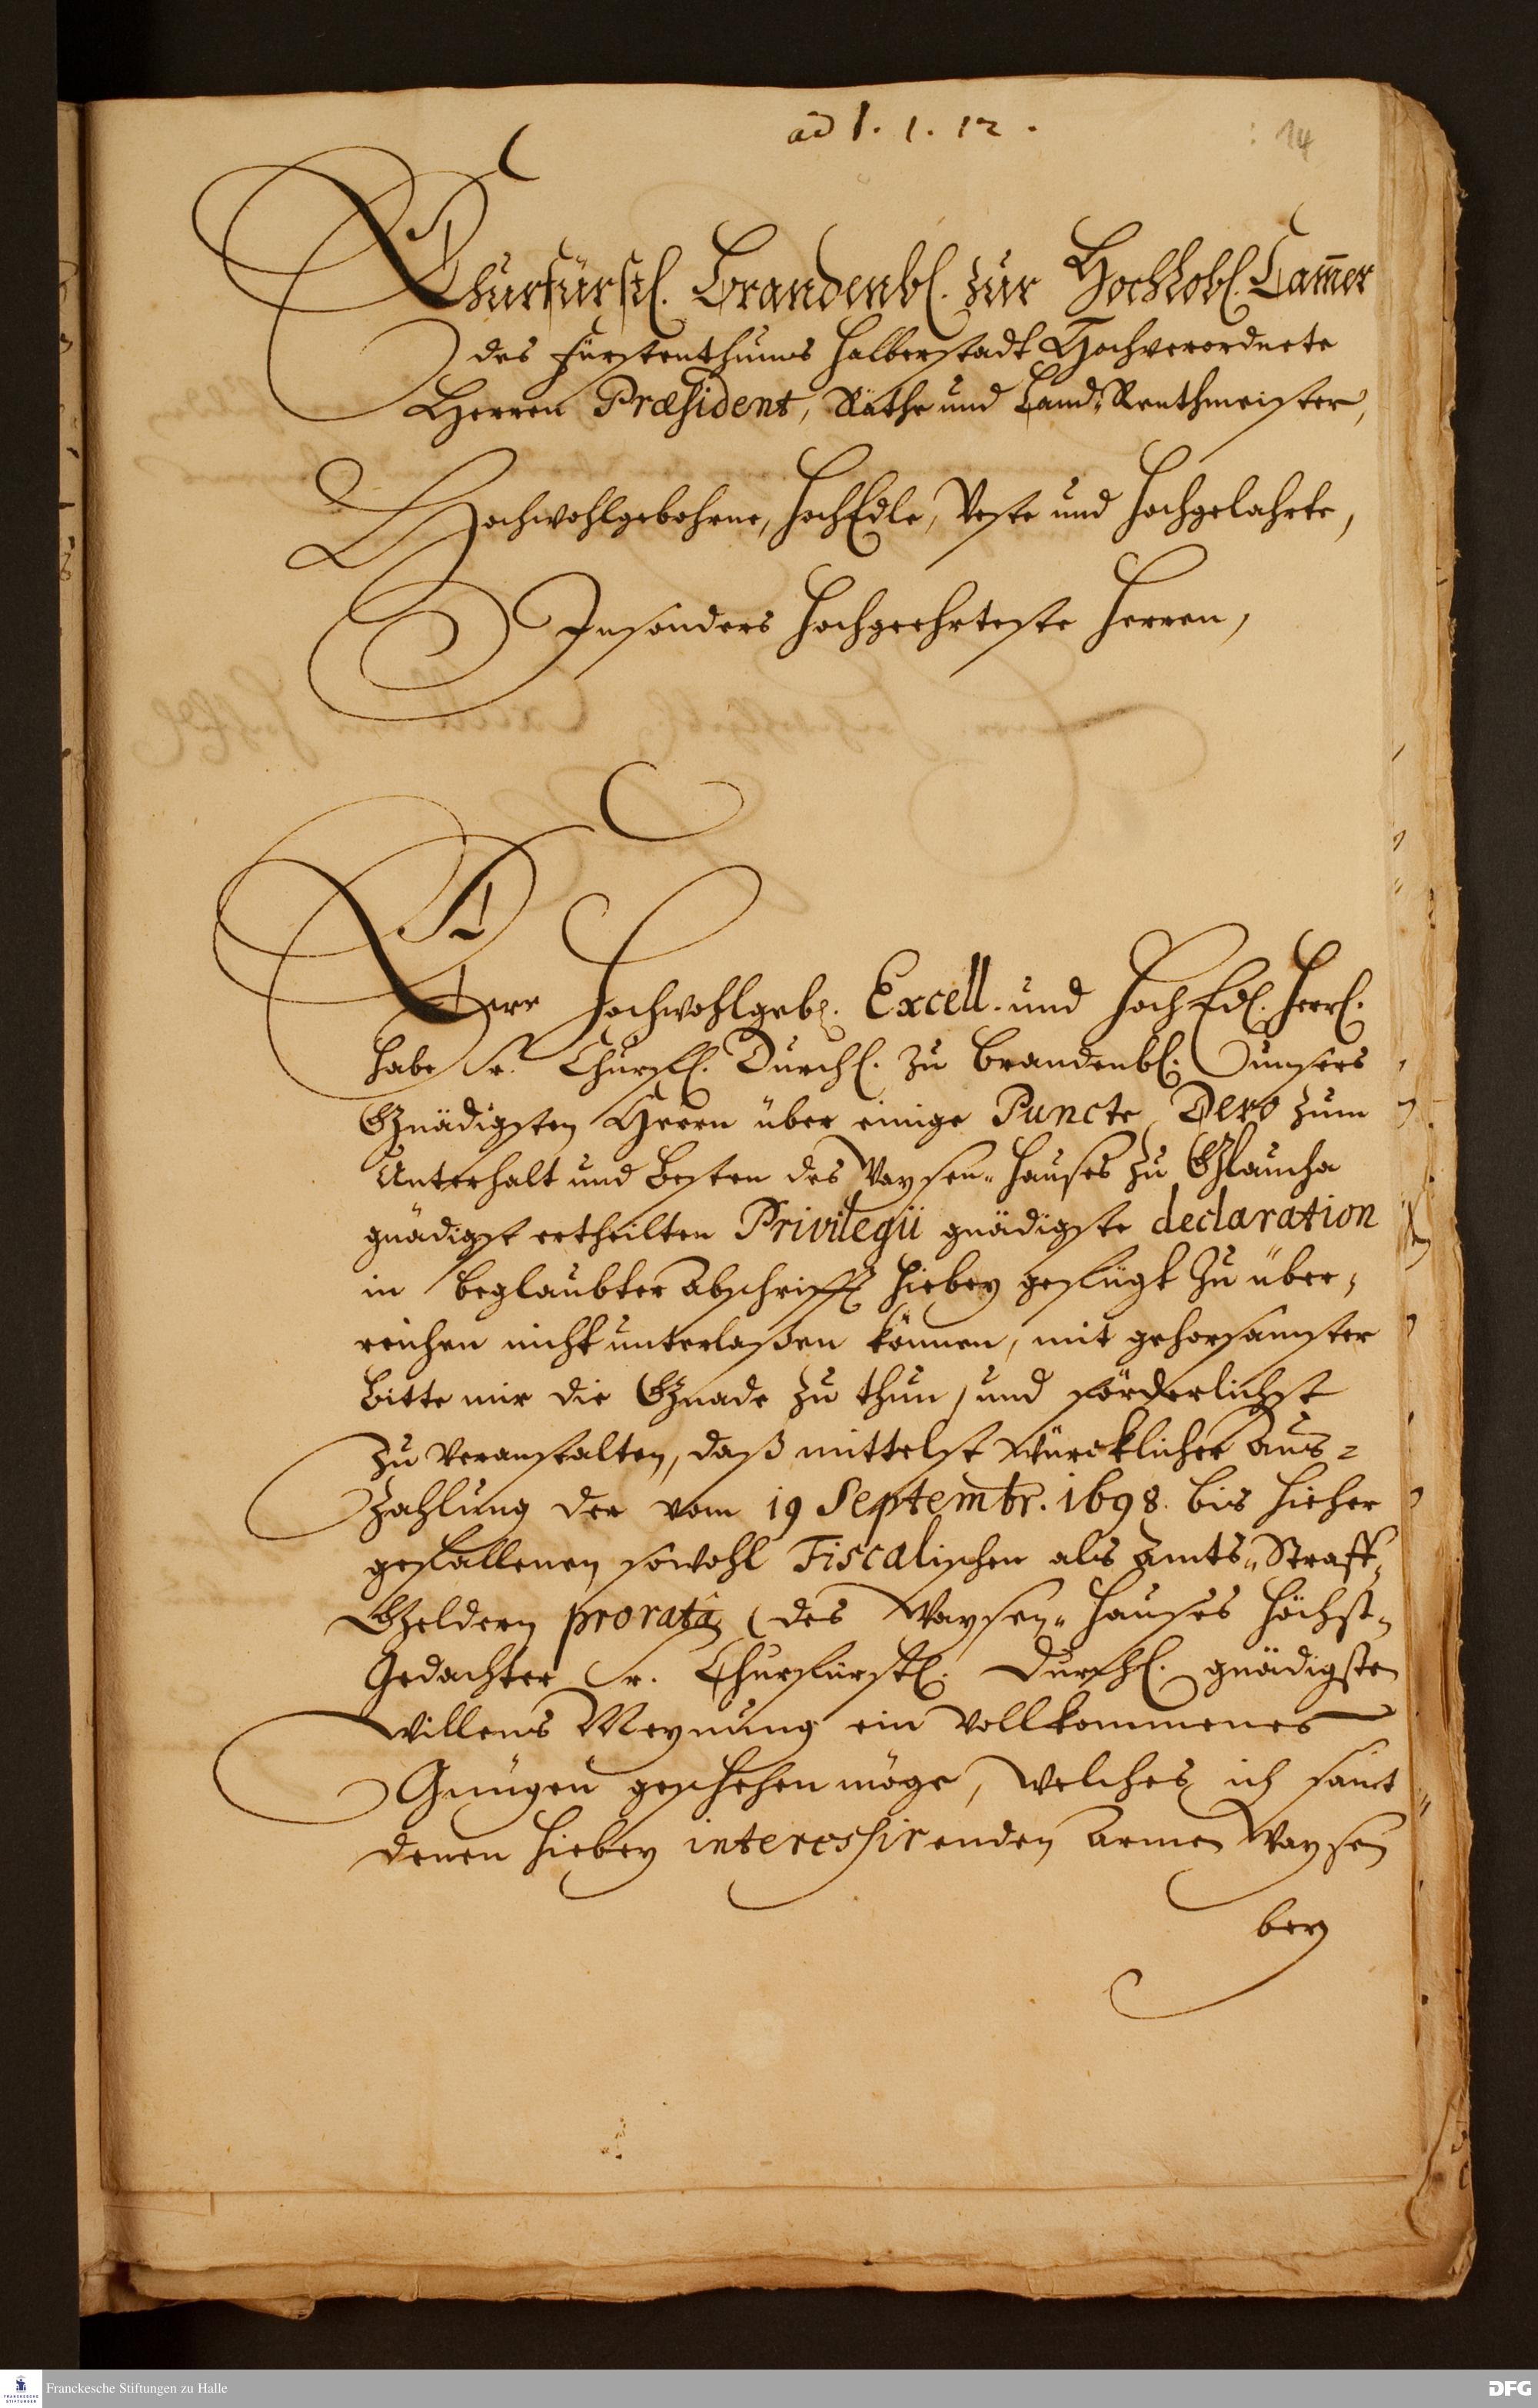 ad 1. 1. 12.
14
Churfürstl. Brandenbl. zur Hochlobl. Cam̅er
des Fürstenthums Halberstadt Hochverordnete
Herren Præsident, Räthe und Land-Renthmeister,
Hochwohlgebohrne, HochEdle, Veste und Hochgelahrte,
Insonders Hochgeehrteste Herren,
Ewr Hochwohlgeb. Excell. und HochEdl. Herrl.
habe Sr. Churfl. Durchl. zu Brandenbl. unsers
Gnädigsten Herrn über einige Puncte Dero zum
Unterhalt und Besten des Waysen-Hauses zu Glaucha
gnädigst ertheilten Privilegii gnädigste declaration
in beglaubter Abschrifft hiebey gefügt zu über-
reichen nicht unterlaßen können, mit gehorsamster
Bitte mir die Gnade zu thun, und förderlichst
zu veranstalten, daß mittelst würcklicher Aus-
zahlung der vom 19 Septembr. 1698. bis hieher
gefallenen sowohl Fiscalischen als Amts-Straff-
Geldern pro ratâ des Waysen-Hauses Höchst-
Gedachter Sr. Churfürstl. Durchl. gnädigsten
Willens Meynung ein vollkommenes
Gnügen geschehen möge, welches ich samt
denen hiebey interessirenden armen Waysen
bey
Franckesche Stiftungen zu Halle
FRANCKESCHE
STIFTUNGEN
DFG